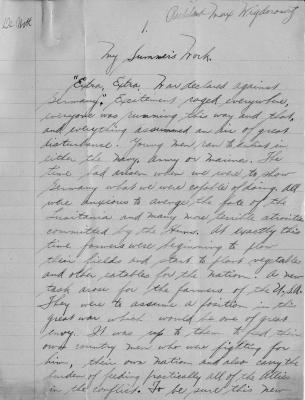 De Witt
Max Wigdorowitz
1.
My Summer's Work.
"Extra, Extra, War declared against
Germany". Excitement raged everywhere,
everyone was running this way and that,
and everything assumed an air of great
disturbance. Young men ran to enlist in
either the Navy, Army or Marine. The
time had arisen when we were to show
Germany what we were capable of doing. All
were anxious to avenge the fate of the
Lusitania and many more terrible atrocities
committed by the Huns. At exactly this
time farmers were beginning to plow
their fields and start to plant vegetables
and other eatables for the nation. A new
task arose for the farmers of the U.S.A.
They were to assume a position in this
great war which would be one of great
envy. It was up to them to feed their
own country men who were fighting for
him, their own nation and also carry the
burden of feeding practically all of the Allies
in the conflict. To be sure this new